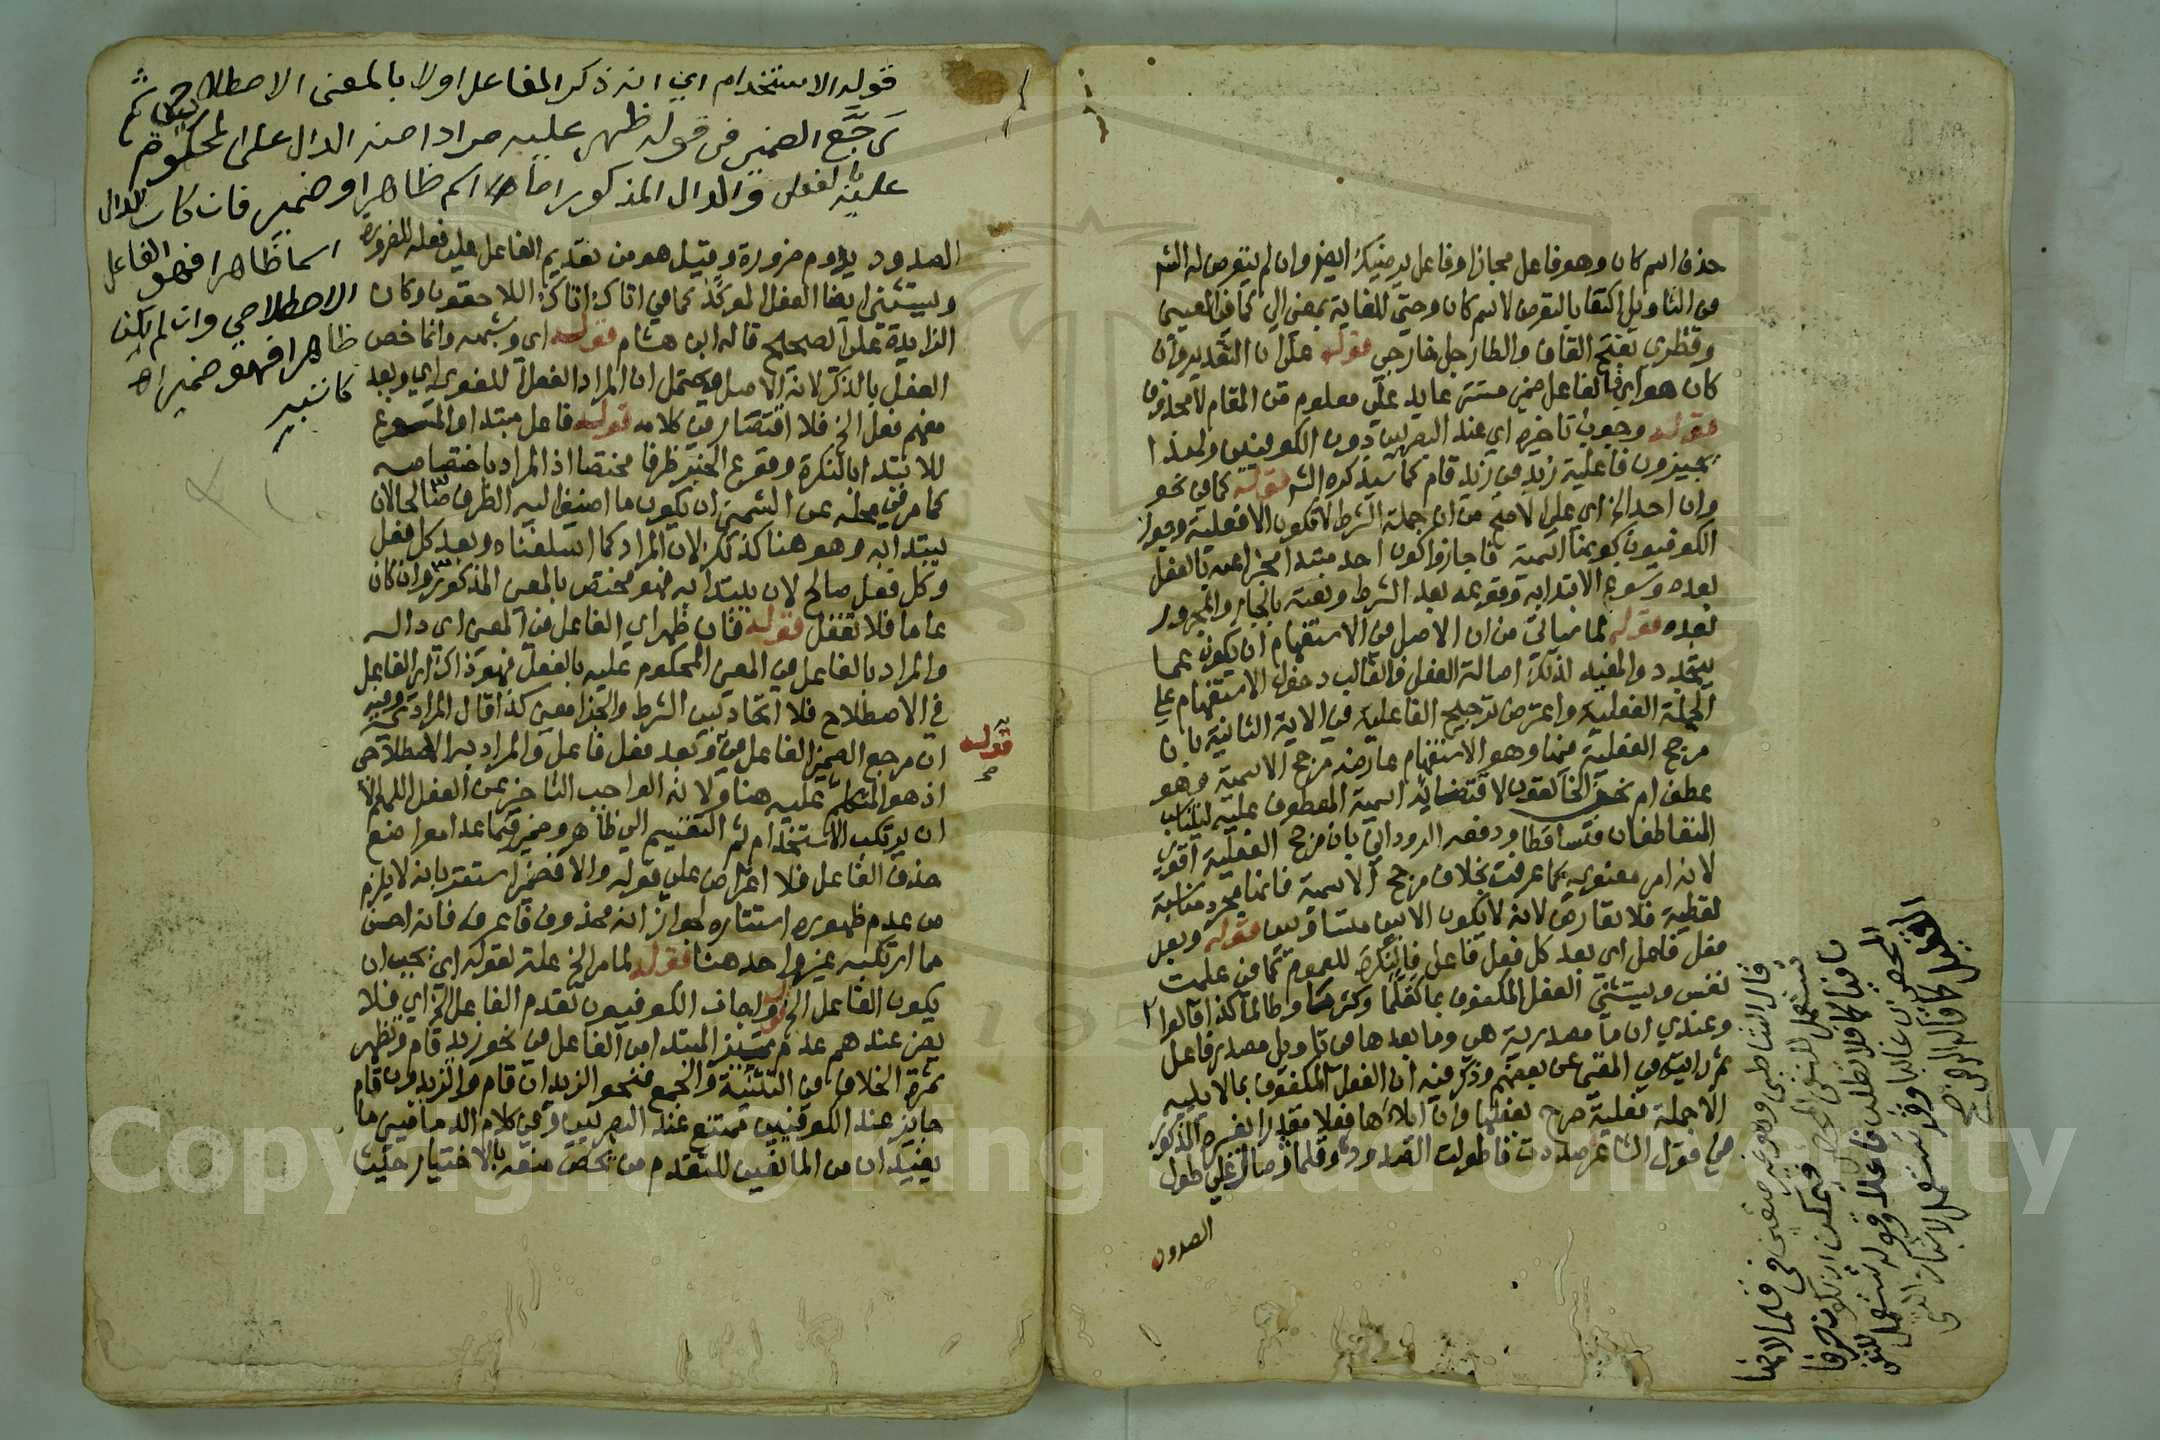 حذف اسم كان وهو فاعل مجازا وفاعل يرضيك ايضا وان لم يتعرض له الشم
من التاويل اكتفا بالتعرض لاسم كان وحتى للغاية بمعنى الى كما في العيني
وقطري بفتح القاف والطا رجل خارجي قوله على ان التقدير وان
كان هو اي فالفاعل ضمير مستتر عايد على معلوم من المقام لا محذوف
قوله وجوب تاخره اي عند البصريين دون الكوفيين ولهذا
يجيزون فاعلية زيد من زيد قام كما سيذكره الشم قوله كما في نحو
وان احد الخ اي على الاصح من ان جملة الشرط لا تكون الا فعلية وجوز
الكوفيون كونها اسمية فاجازوا كون احد مبتدا مخبرا عنه بالفعل
بعده وسوغ الابتدا به وقوعه بعد الشرط ونعته بالجار والمجرور
بعده قوله لما سياتي من ان الاصل في الاستفهام ان يكون عما
يتجدد والمفيد لذلك اصالة الفعل فالغالب دخول الاستفهام على
الجملة الفعلية واعترض ترجيح الفاعلية في الاية الثانية بان
مرجح الفعلية فيها وهو الاستفهام عارضه مرجح الاسمية وهو
عطف ام نحن الخالقون لاقتضائه اسمية المعطوف عليه ليتناسب
المتعاطفان فتساقطا ودفعه الروداني بان مرجح الفعلية اقوى
لانه امر معنوي كما عرفت بخلاف مرجح الاسمية فانها مجرد مناسبة
لفظية فلا تعارض لانه لا يكون الا بين متساويين قوله وبعد
فعل فاعل اي بعد كل فعل فاعل فالنكرة للعموم كما في علمت
نفس ويستثنى الفعل المكفوف بما كقلما وكثر ما وطالما كذا قالوا
وعندي ان ما مصدرية هي وما بعدها في تاويل مصدر فاعل
ثم رايت في المغني عن بعضهم وذكر فيه ان الفعل المكفوف بما لا يليه
الا جملة فعلية صرح بفعلها وان ايلاءها فعلا مقدرا يفسره المذكور
في قول الشاعر صددت فاطولت الصدود وقلما وصال على طول
الصدود
قال الشاطبي وهو غير متعين في قلما لانها
تستعمل للنفي المحض فيمكن ان تكون حرفا
نافيا كما فلا تطلب فاعلا وقوله تستعمل للنفي
المحض اي غالبا وقد تستعمل لاثبات الشي
القليل كما قاله الرضى
قوله الاستخدام اي انه ذكر الفاعل اولا بالمعنى الاصطلاحي ثم
رجّع الضمير في قوله ظهر عليه مرادا منه الدال على المحكوم
عليه بالفعل والدال المذكور اما اسم ظاهر او ضمير فان كان الدال
اسما ظاهرا فهو الفاعل
الاصطلاحي وان لم يكن
ظاهرا فهو ضمير اه
كاتبه
الصدود يدوم ضرورة وقيل هو من تقديم الفاعل على فعله للضرورة
ويستثنى ايضا الفعل الموكد كما في اتاك اتاك اللاحقون وكان
الزايدة على الصحيح قاله ابن هشام قوله اي وشبهه وانما خص
الفعل بالذكر لانه الاصل ويحتمل ان المراد الفعل اللغوي اي وبعد
مفهم فعل الخ فلا اقتصار في كلامه قوله فاعل مبتدا والمسوغ
للابتدا بالنكرة وقوع الخبر ظرفا مختصا اذ المراد باختصاصه
كما مر في محله عن الشمني ان يكون ما اضيف اليه الظرف صالحا لان
يبتدا به وهو هنا كذلك لان المراد كما اسلفناه وبعد كل فعل
وكل فعل صالح لان يبتدا به فهو مختص بالمعنى المذكور وان كان
عاما فلا تغفل قوله فان ظهر اي الفاعل في المعنى اي داله
والمراد بالفاعل في المعنى المحكوم عليه بالفعل فهو ذاك اي الفاعل
في الاصطلاح فلا اتحاد بين الشرط والجزا معنى كذا قال المرادي وفيه
ان مرجع الضمير الفاعل في وبعد فعل فاعل والمراد به الاصطلاحي
قوله
اذ هو المتكلم عليه هنا ولانه الواجب التاخير عن الفعل اللهم الا
ان يرتكب الاستخدام ثم التقسيم الى ظاهر وضمير فيما عدا مواضع
حذف الفاعل فلا اعتراض على قوله والا فضمير استتر بانه لا يلزم
من عدم ظهوره استتاره لجواز انه محذوف فاعرفه فانه احسن
مما ارتكبه غير واحد هنا قوله لما مر الخ علة لقوله اي يجب ان
يكون الفاعل الخ قوله واجاز الكوفيون تقدم الفاعل الخ اي فلا
يضر عندهم عدم تمييز المبتدا من الفاعل في نحو زيد قام وتظهر
ثمرة الخلاف في التثنية والجمع فنحو الزيدان قام والزيدون قام
جايز عند الكوفيين ممتنع عند البصريين وفي كلام الدماميني ما
يفيد ان من المانعين للتقدم من يخص منعه بالاختيار حيث